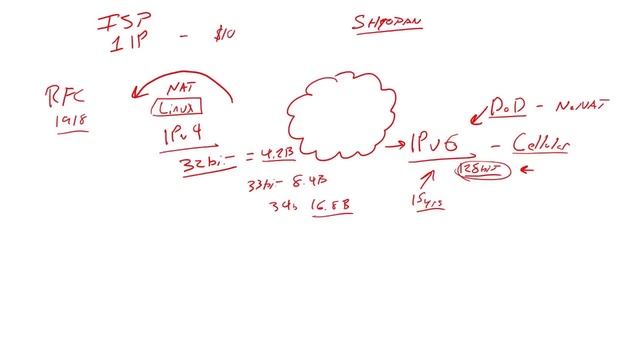 ISP
1 IP - $10
SHODAN
RFC
1918
NAT
Linux
IPv4
32bit = 4.2B
33bit 8.4B
34b 16.8B
IPv6
15yrs
DoD - NoNAT
- Cellular
128bit